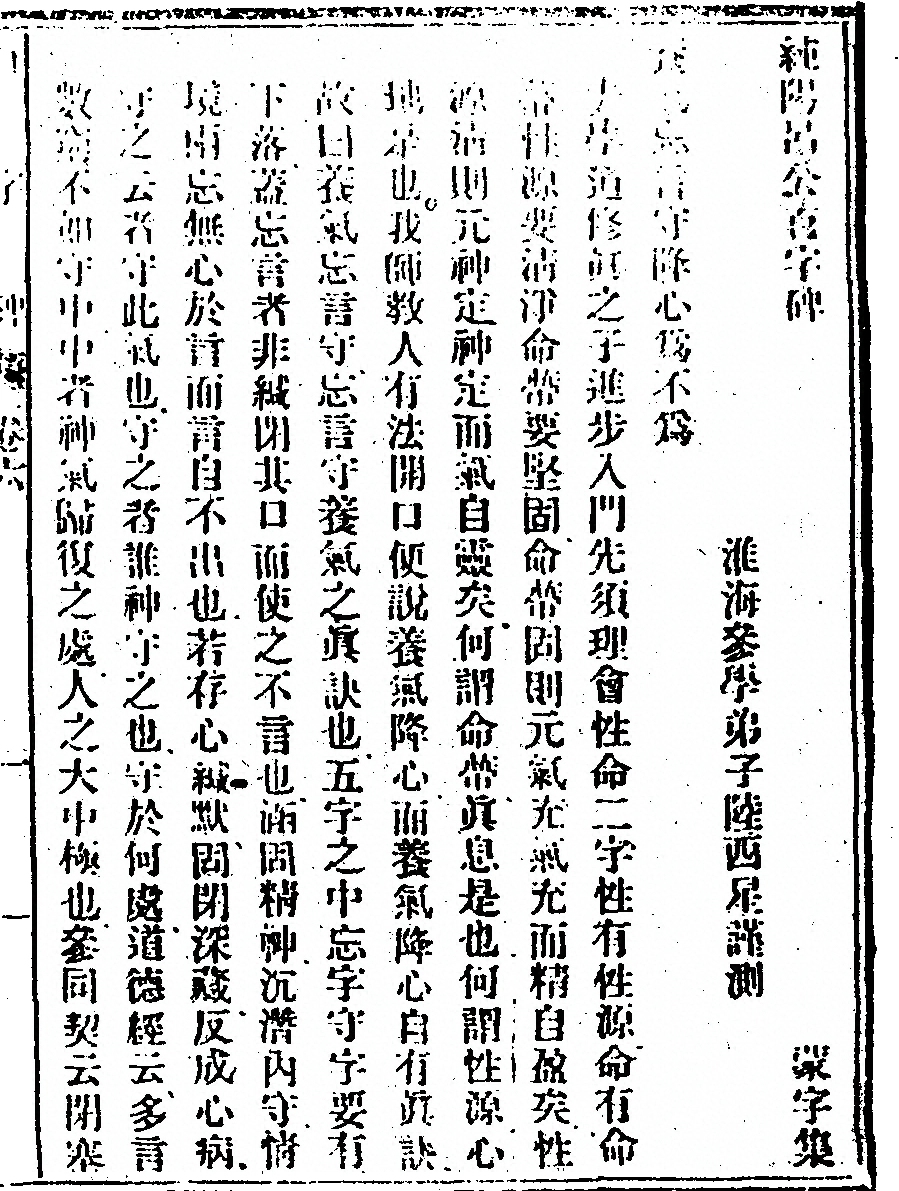 純陽呂公百字碑　蒙字集
淮海參學弟子陸西星謹測
養氣忘言守降心爲不爲
夫學道修眞之子進步入門先須理會性命二字性有性源命有命
蒂性源要清淨命蒂要堅固命蒂固則元氣充氣充而精自盈矣性
源清則元神定神定而氣自靈矣何謂命蒂眞息是也何謂性源心
地是也我師教人有法開口便說養氣降心而養氣降心自有眞訣
故曰養氣忘言守忘言守養氣之眞訣也五字之中忘字守字要有
下落蓋忘言者非緘閉其口而使之不言也涵固精神沉潛內守情
境兩忘無心於言而言自不出也若存心緘默固閉深藏反成心病
守之云者守此氣也守之者誰神守之也守於何處道德經云多言
數窮不如守中中者神氣歸復之處人之大中極也參同契云閉塞
卷六